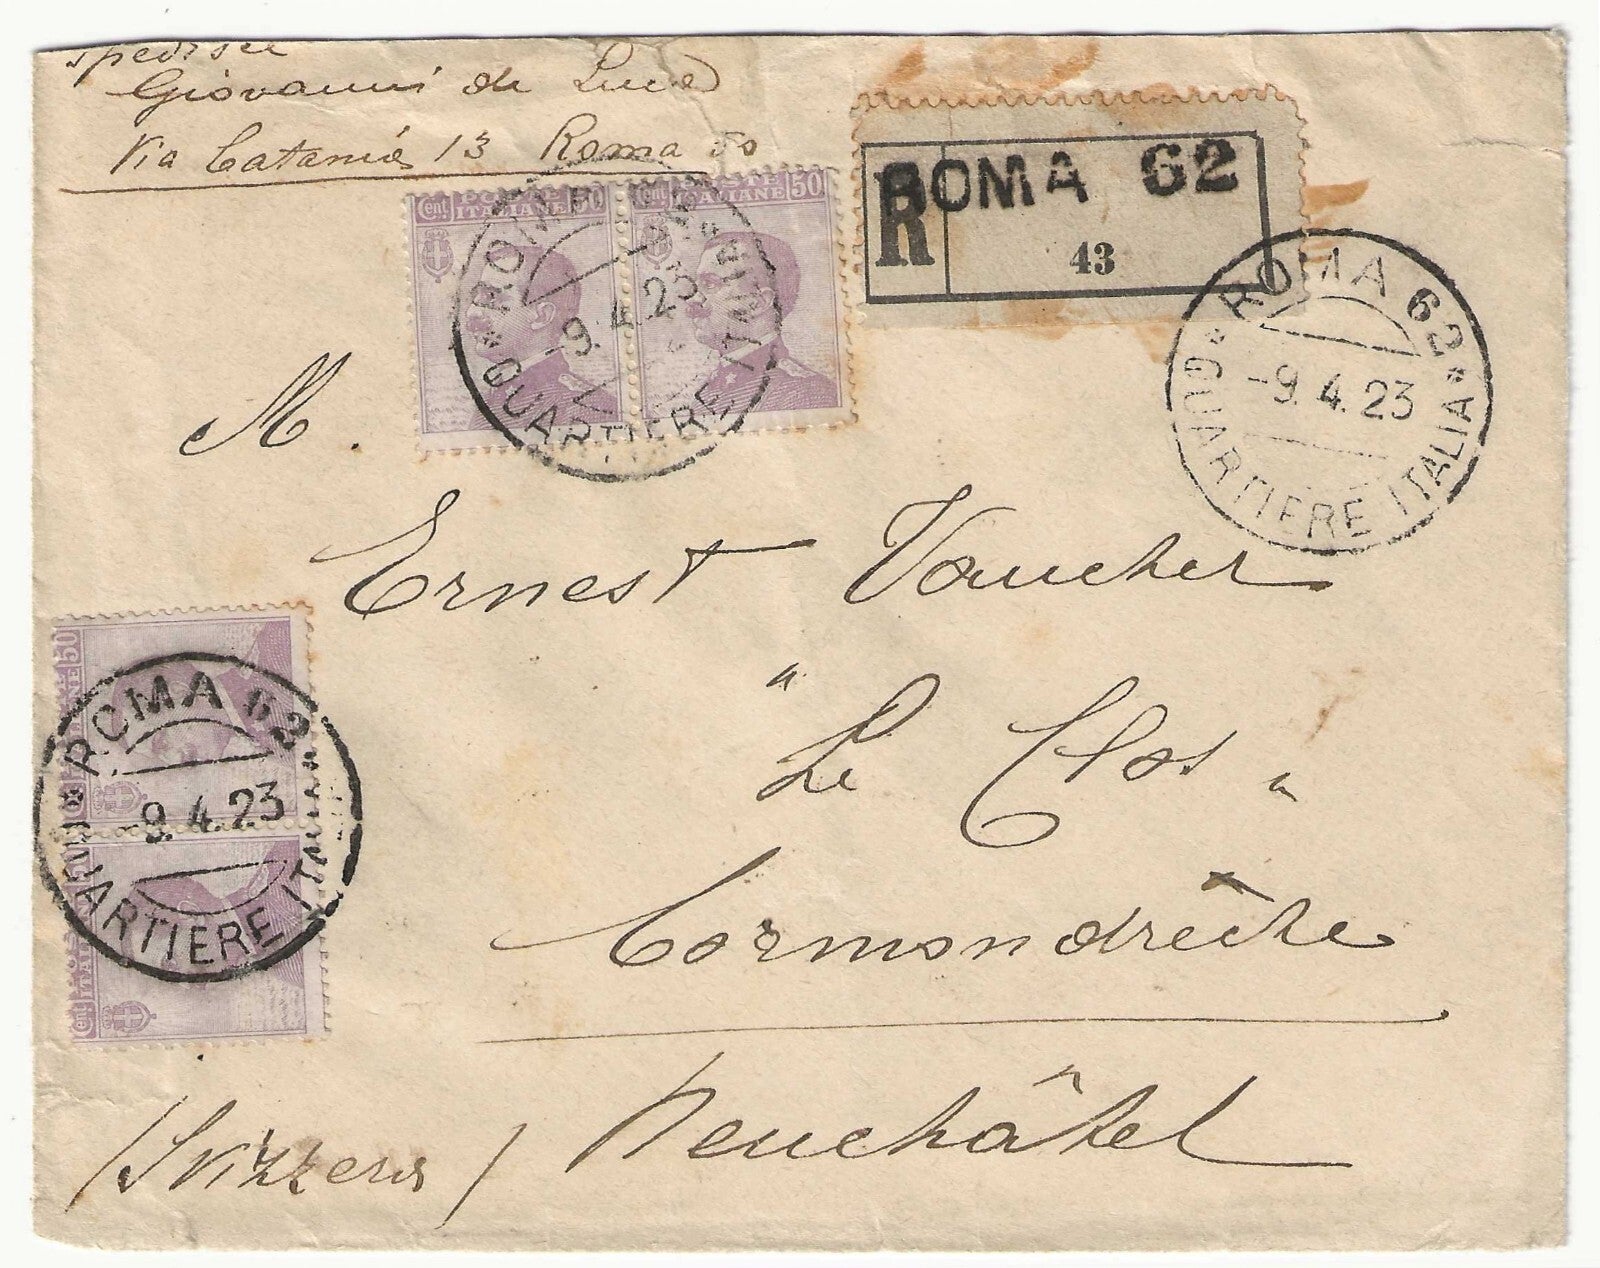 spedisce
Giovanni de Luca
Via Catania 13 Roma
R
ROMA 62
43
Cent. POSTE ITALIANE 50
Cent. POSTE ITALIANE 50
ROMA 62
-9.4.23
*QUARTIERE ITALIA*
ROMA 62
-9.4.23
*QUARTIERE ITALIA*
M.
Ernest Vaucher
"Le Clos"
Cormondrèche
Neuchâtel
(Svizzera)
50
ROMA 62
-9.4.23
*QUARTIERE ITALIA*
Cent. ITALIANE 50